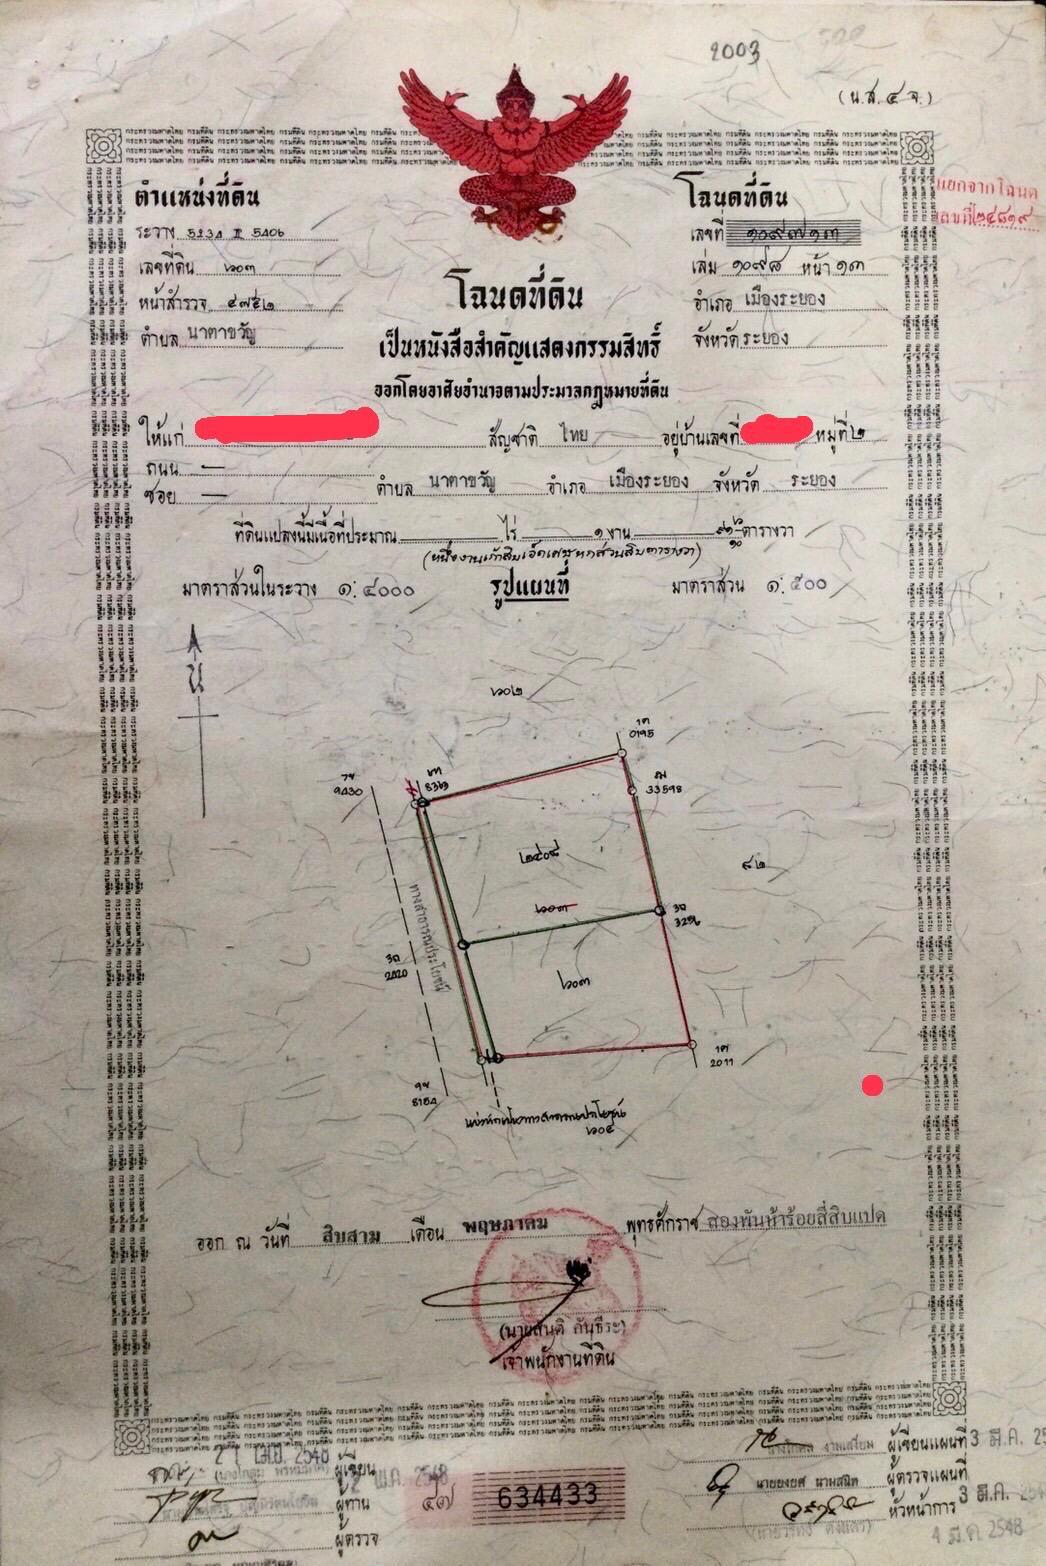 2003
(น.ส. ๔ จ.)
แยกจากโฉนด
เลขที่ ๒๔๘๑๙
ตำแหน่งที่ดิน
ระวาง 5234 II 5406
เลขที่ดิน ๖๐๓
หน้าสำรวจ ๔๗๕๒
ตำบล นาตาขวัญ
โฉนดที่ดิน
เลขที่ ๑๐๙๗๑๓
เล่ม ๑๐๙๘ หน้า ๑๓
อำเภอ เมืองระยอง
จังหวัด ระยอง
โฉนดที่ดิน
เป็นหนังสือสำคัญแสดงกรรมสิทธิ์
ออกโดยอาศัยอำนาจตามประมวลกฎหมายที่ดิน
ให้แก่ สัญชาติ ไทย อยู่บ้านเลขที่ หมู่ที่ ๒
ถนน —
ซอย — ตำบล นาตาขวัญ อำเภอ เมืองระยอง จังหวัด ระยอง
ที่ดินแปลงนี้มีเนื้อที่ประมาณ ไร่ ๑ งาน ๙๑ ๖/๑๐ ตารางวา
(หนึ่งงานเก้าสิบเอ็ดเศษหกส่วนสิบตารางวา)
มาตราส่วนในระวาง ๑:๔๐๐๐ รูปแผนที่ มาตราส่วน ๑:๕๐๐
น
๖๐๒
0195
33598
9430
8363
๒๔๐๘
๘๒
๖๐๓
3296
ทางสาธารณประโยชน์
2420
๖๐๓
2011
8184
แบ่งหักเป็นทางสาธารณประโยชน์
๖๐๔
ออก ณ วันที่ สิบสาม เดือน พฤษภาคม พุทธศักราช สองพันห้าร้อยสี่สิบแปด
(นายสันติ กันธีระ)
เจ้าพนักงานที่ดิน
เม.ย. 2548
ผู้เขียน
พ.ค. 2548
ผู้ทาน
ผู้ตรวจ
๔๗ 634433
งามเสงี่ยม ผู้เขียนแผนที่ 3 มี.ค.
นายยงยศ นามสนิท ผู้ตรวจแผนที่
หัวหน้าการ 3 มี.ค.
4 มี.ค. 2548